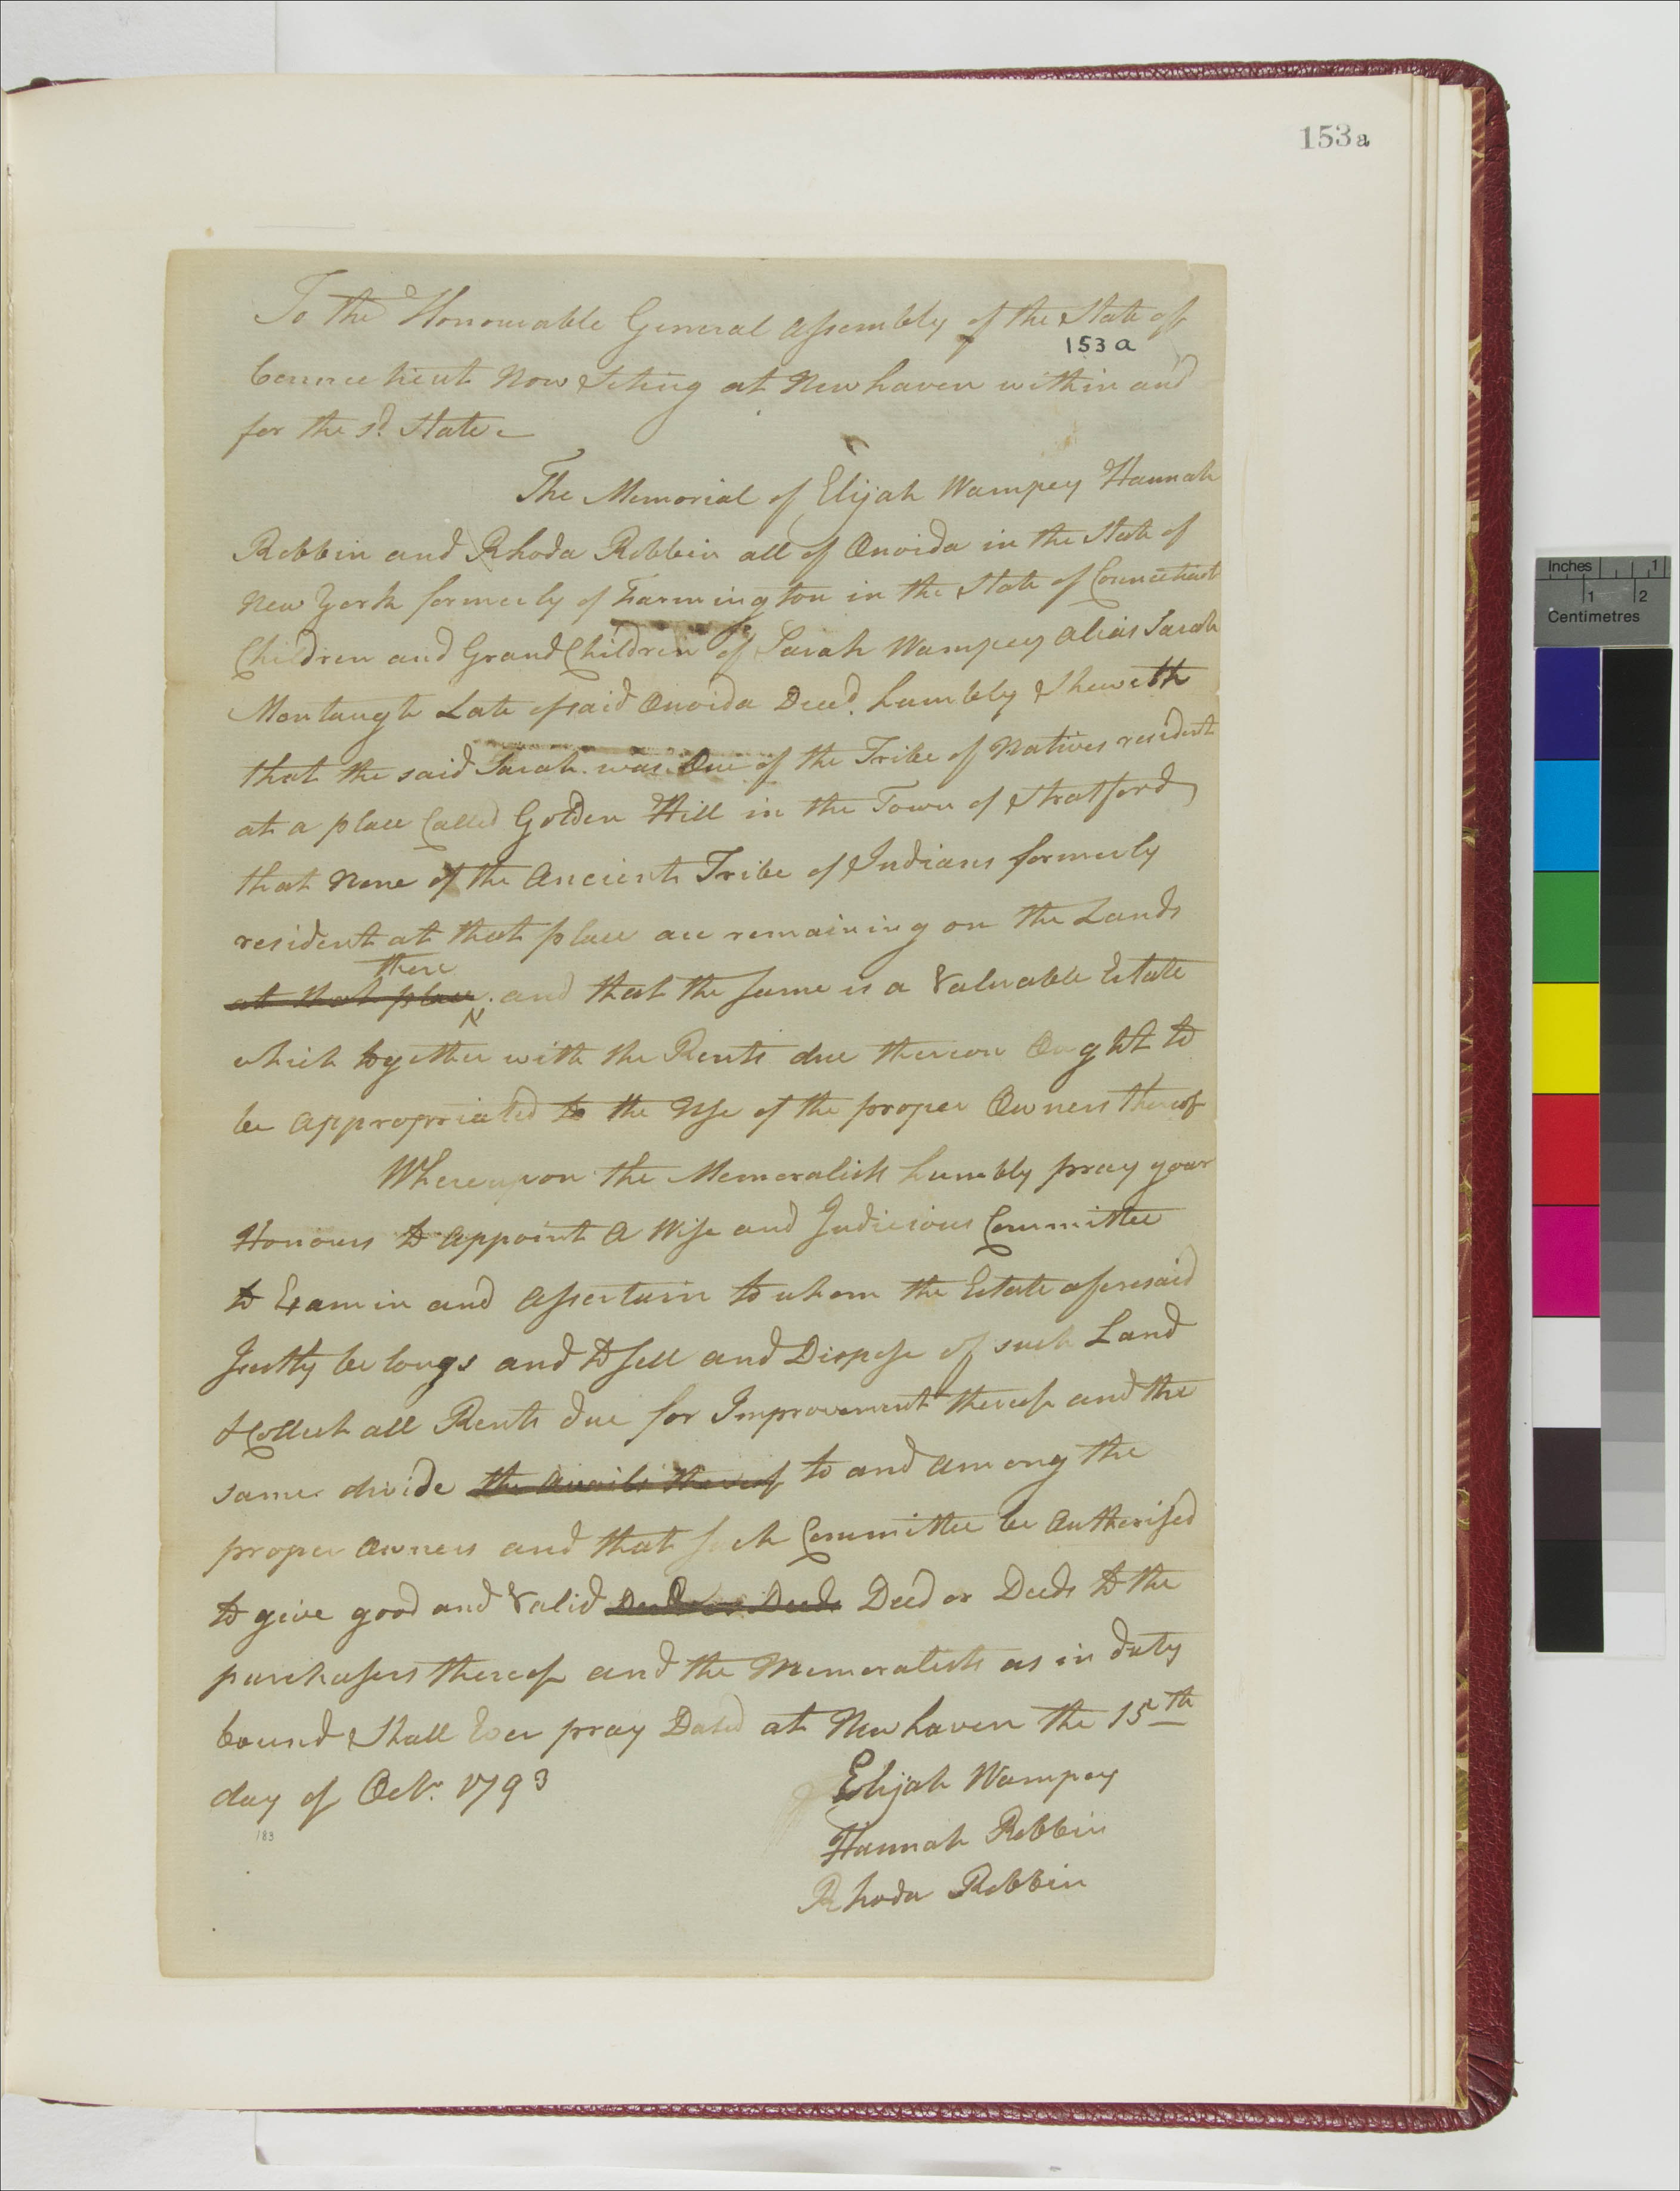 153a
To the Honourable General Assembly of the State of
153 a
Connecticut Now Siting at Newhaven within and
for the sd. State –
The Memorial of Elijah Wampey Hannah
Robbin and Rhoda Robbin all of Onoida in the State of
New York formerly of Farmington in the State of Connecticut
Children and Grand Children of Sarah Wampey alias Sarah
Montaugk Late of said Onoida Deced. humbly Sheweth
that the said Sarah was One of the Tribe of Natives resident
at a place Called Golden Hill in the Town of Stratford
that None of the Ancient Tribe of Indians formerly
resident at that place are remaining on the Lands
there
at that place and that the Same is a Valuable Estate
which together with the Rents due thereon Ought to
be appropriated to the Use of the proper Owners thereof
Whereupon the Memoralists humbly pray your
Honours to appoint a Wise and Judicious Committee
to Examin and Assertain to whom the Estate aforesaid
Justly belongs and to Sell and Dispose of such Land
& Collect all Rents due for Improvement thereof and the
same divide the avails thereof to and among the
proper Owners and that such Committee be Authorised
to give good and Valid Deed or Deeds Deed or Deeds to the
purchasers thereof and the Memoralists as in duty
bound Shall Ever pray Dated at Newhaven the 15th
day of Octr. 1793
Elijah Wampey
183
Hannah Robbin
Rhoda Robbin
Inches 1
1 2
Centimetres